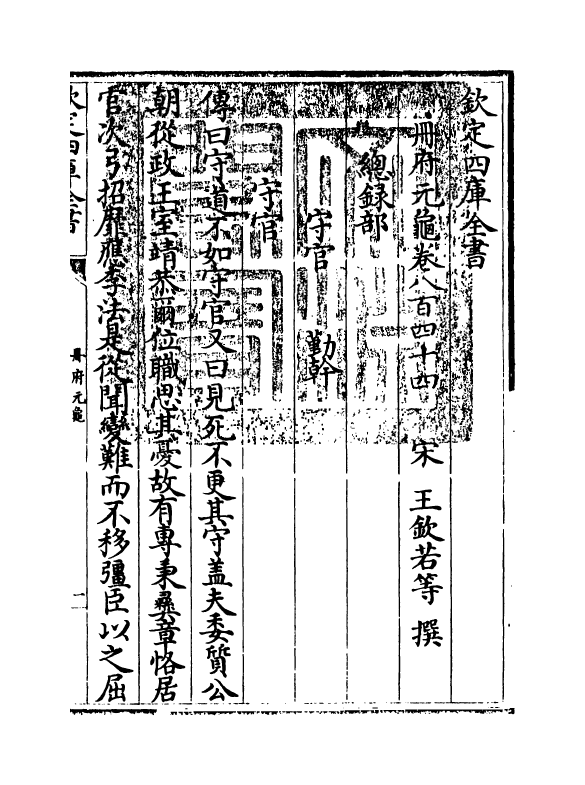 欽定四庫全書
冊府元龜卷八百四十四　宋　王欽若等　撰
總録部
守官　勤幹
守官
傳曰守道不如守官又曰見死不更其守盖夫委質公
朝從政王室靖恭爾位職思其憂故有專秉彞章恪居
官次弓招靡應李法是從聞變難而不移彊臣以之屈
欽定四庫全書
冊府元龜